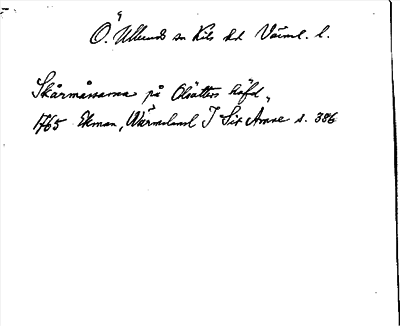 Ö. Ullerud sn Kils hd Värml. l.
Skårmåssarna på Olsätters häfd,
1765 Ekman, Wärmland I Sit Amne s. 386